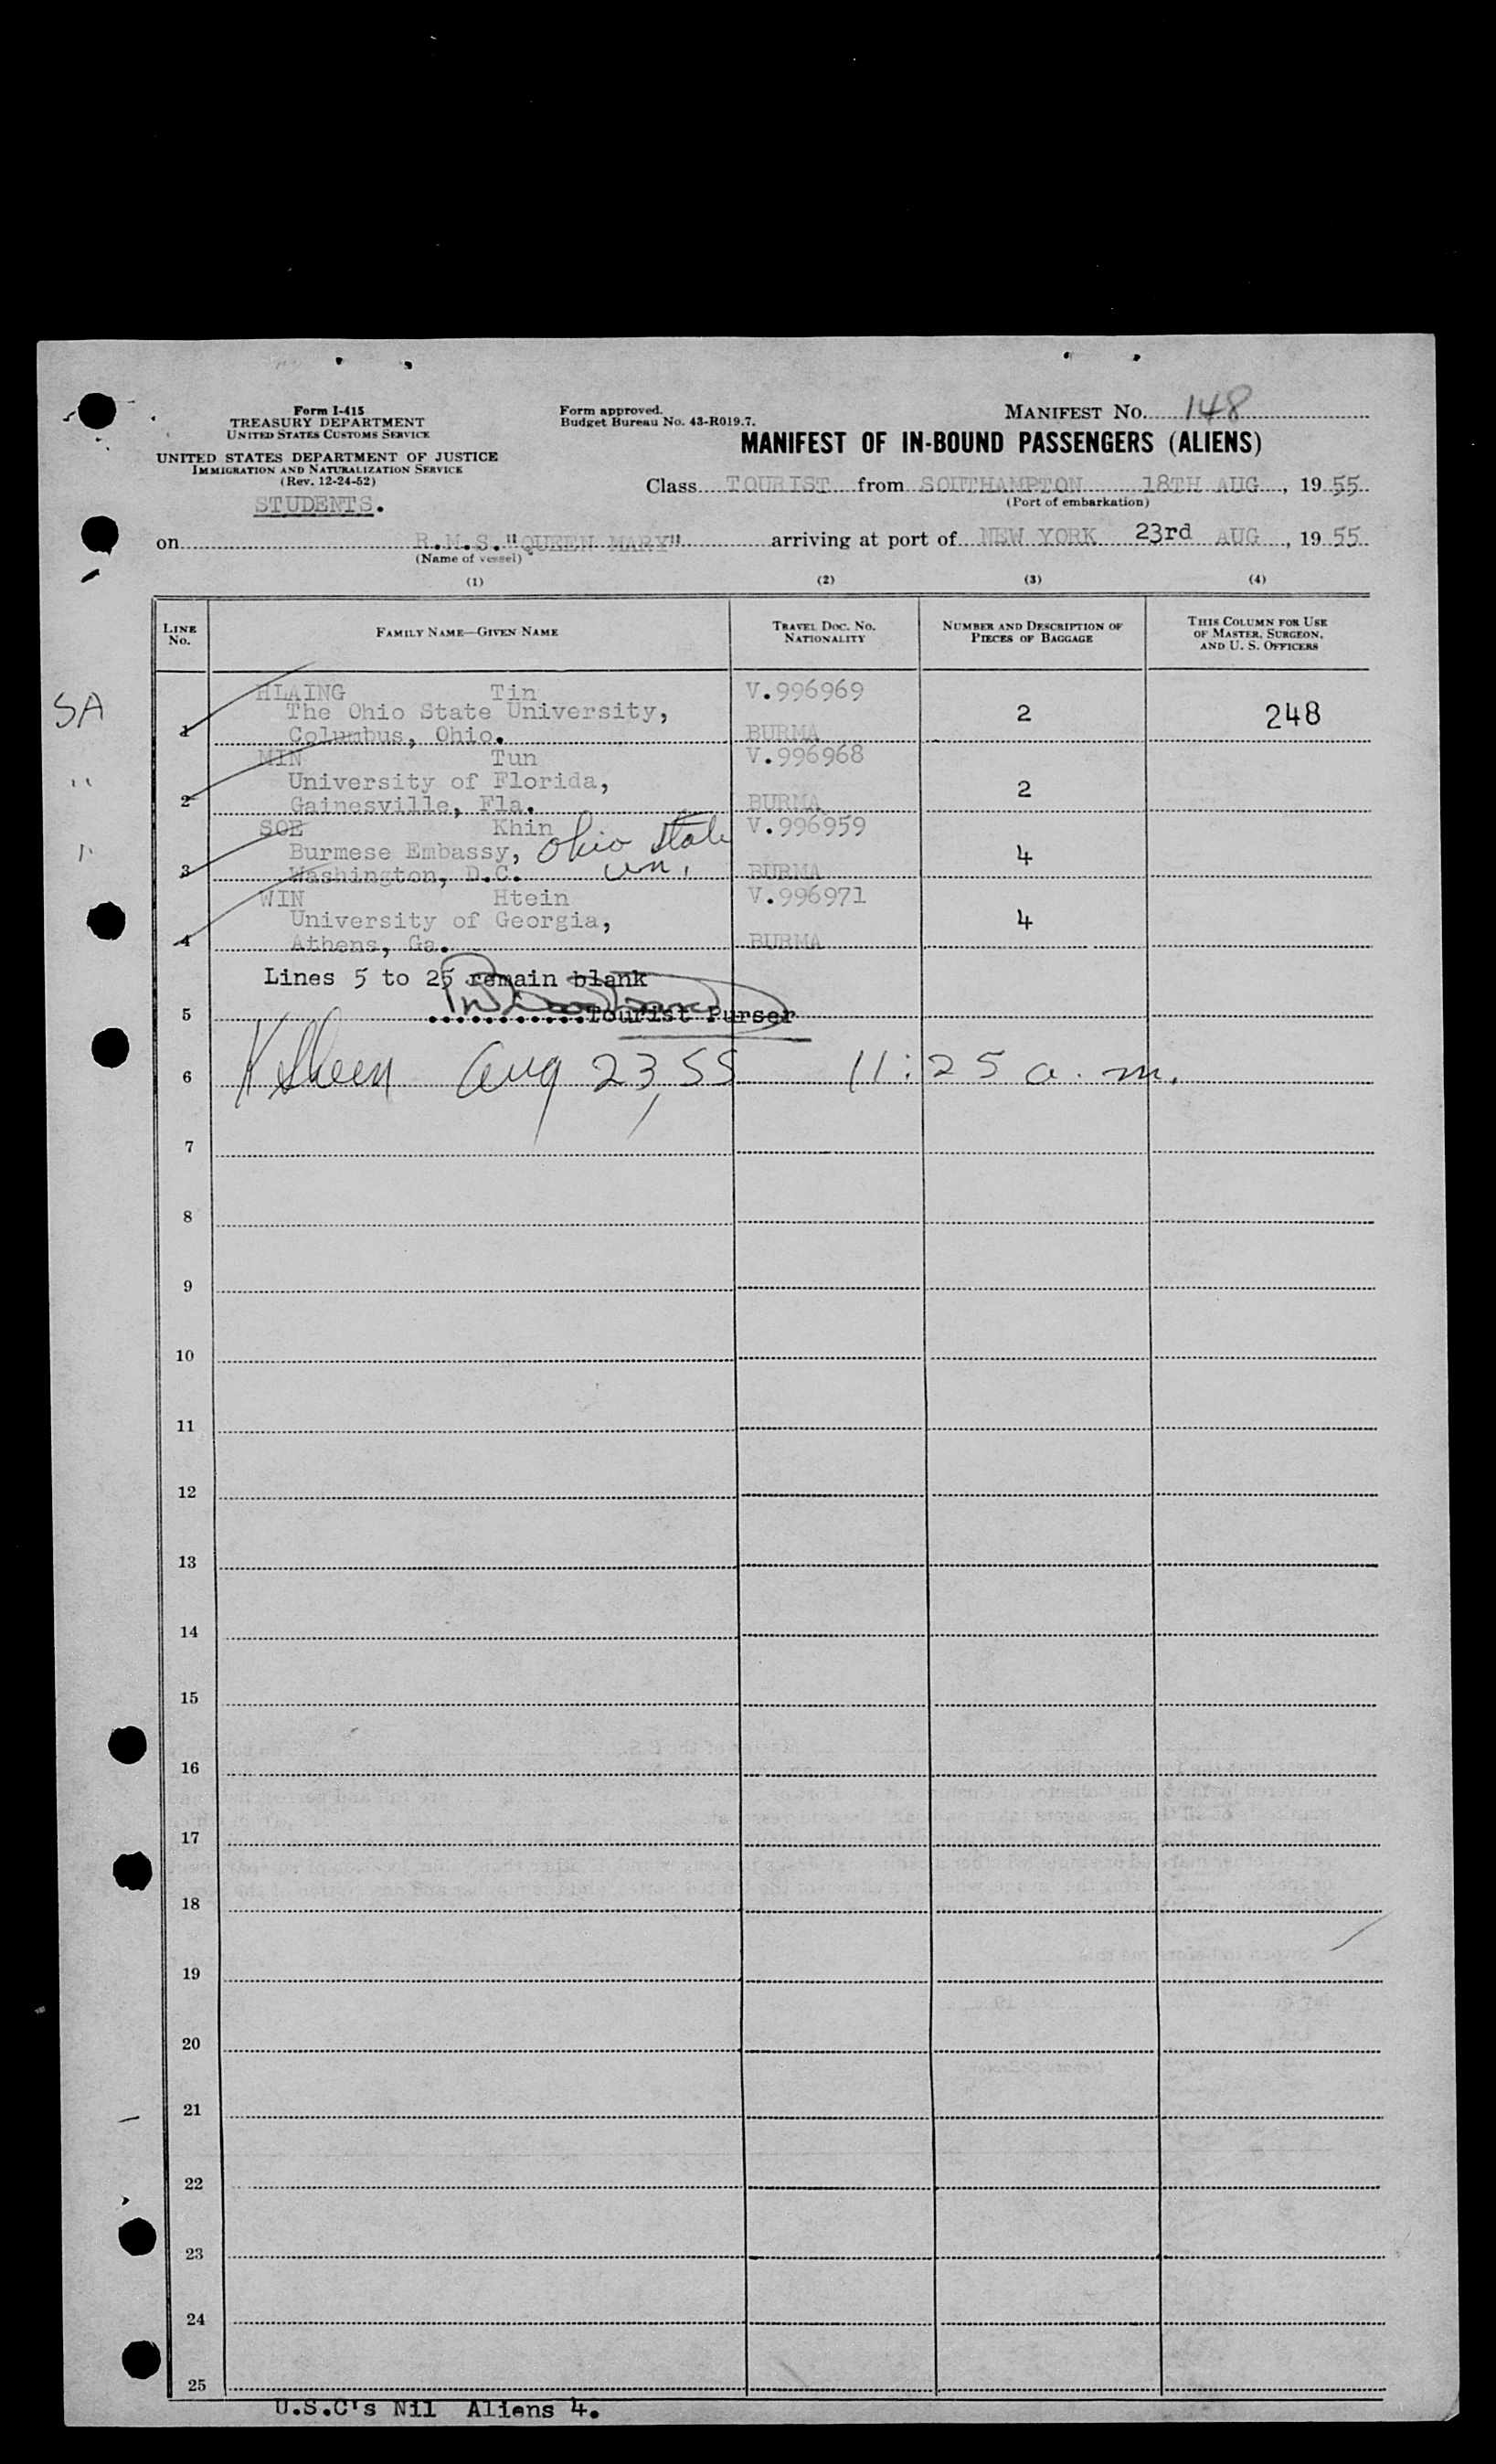 Form I-415
TREASURY DEPARTMENT
UNITED STATES CUSTOMS SERVICE
UNITED STATES DEPARTMENT OF JUSTICE
IMMIGRATION AND NATURALIZATION SERVICE
(Rev. 12-24-52)
STUDENTS.
Form approved.
Budget Bureau No. 43-R019.7.
MANIFEST NO. 148
MANIFEST OF IN-BOUND PASSENGERS (ALIENS)
Class TOURIST from SOUTHAMPTON 18TH AUG , 19 55
(Port of embarkation)
on R.M.S."QUEEN MARY" arriving at port of NEW YORK 23rd AUG , 19 55
(Name of vessel)
(1) (2) (3) (4)
LINE NO. FAMILY NAME—GIVEN NAME TRAVEL DOC. NO. NATIONALITY NUMBER AND DESCRIPTION OF PIECES OF BAGGAGE THIS COLUMN FOR USE OF MASTER, SURGEON, AND U. S. OFFICERS
HLAING Tin V.996969
SA The Ohio State University, 2 248
1 Columbus, Ohio. BURMA
MIN Tun V.996968
" University of Florida, 2
2 Gainesville, Fla. BURMA
SOE Khin V.996959
" Burmese Embassy, Ohio State 4
3 Washington, D.C. Un. BURMA
WIN Htein V.996971
University of Georgia, 4
4 Athens, Ga. BURMA
Lines 5 to 25 remain blank
5 Tourist Purser
6 Aug 23, 55 11:25 a.m.
7
8
9
10
11
12
13
14
15
16
17
18
19
20
21
22
23
24
25
U.S.C's Nil Aliens 4.